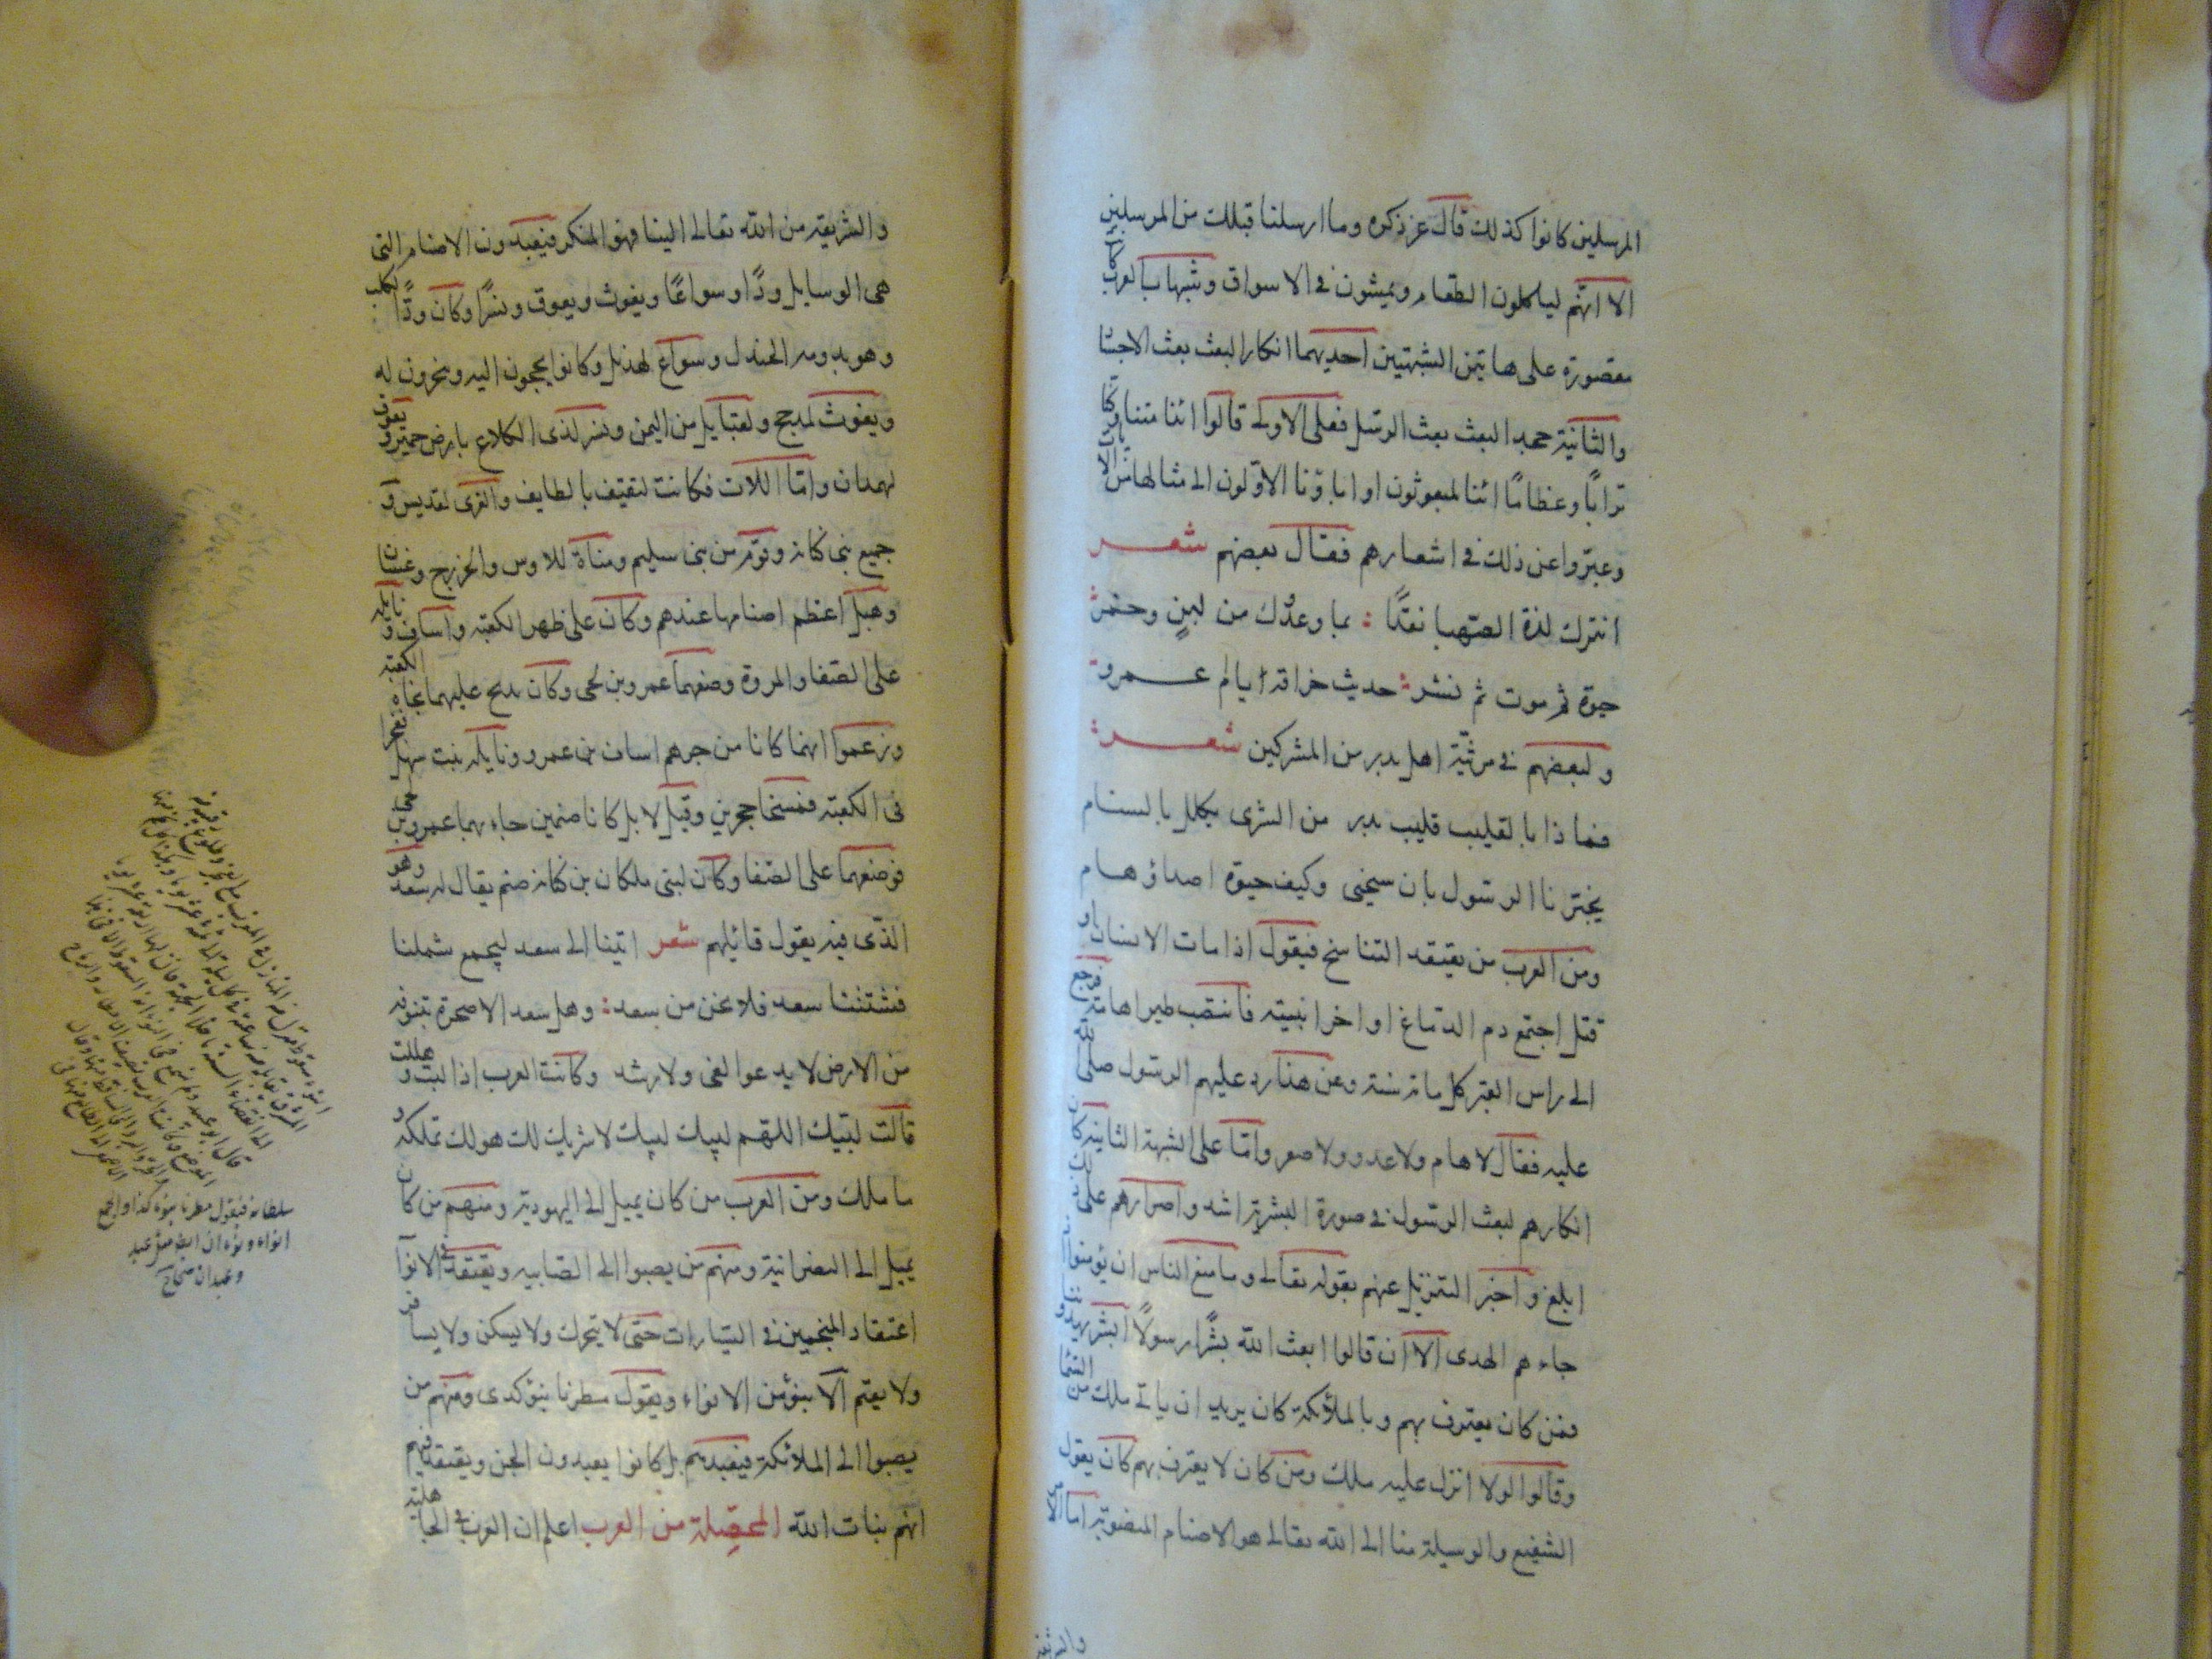 المرسلين كانوا كذلك قال عز ذكره وما ارسلنا قبلك من المرسلين
الا انهم لياكلون الطعام ويمشون في الاسواق وشبهات العرب كانت
مقصورة على هاتين الشبهتين احديهما انكار البعث بعث الاجساد
والثانية جحد البعث بعث الرسل فعلى الاولى قالوا ائذا متنا وكنا
ترابا وعظاما ائنا لمبعوثون او اباؤنا الاولون الى امثالها من الايات
وعبروا عن ذلك في اشعارهم فقال بعضهم شعر
اترك لذة الصهبا نقدا بما وعدك من لبن وخمر
حيوة ثم موت ثم نشر حديث خرافة يا ام عمرو
ولبعضهم في مرثية اهل بدر من المشركين شعر
فماذا بالقليب قليب بدر من الشزى يكلل بالسنام
يخبرنا الرسول بان سنحيى وكيف حيوة اصداؤ هام
ومن العرب من يعتقد التناسخ فيقول اذا مات الانسان او
قتل اجتمع دم الدماغ او اخرا بنيته فانتصب طيرا هامة فيرجع
الى راس القبر كل ماية سنة وعن هذا رد عليهم الرسول صلى الله
عليه فقال لا هام ولا عدو ولا صفر واما على الشبهة الثانية كان
انكارهم لبعث الرسول في صورة البشرية اشد واصرارهم على ذلك
ابلغ واخبر التنزيل عنهم بقوله تعالى وما منع الناس ان يؤمنوا اذ
جاءهم الهدى الا ان قالوا ابعث الله بشرا رسولا ابشر يهدوننا
فمن كان يعترف بهم وبالملائكة كان يريد ان ياتي ملك من السماء
وقالوا لولا انزل عليه ملك ومن كان لا يعترف بهم كان يقول
الشفيع والوسيلة منا الى الله تعالى هو الاصنام المنصوبة اما الامر
والشريعة
والشريعة من الله تعالى الينا فهو المنكر فيعبدون الاصنام التي
هي الوسايل ودا وسواعا ويغوث ويعوق ونسرا وكان ودا لكلب
وهو بدومه الجندل وسواع لهذيل وكانوا يحجون اليه وينحرون له
ويغوث لمذحج ولقبايل من اليمن ونسر لذى الكلاع بارض حمير ويعوق
لهمدان واما اللات فكانت لثقيف بالطايف والعزى لقديس و
جميع بني كنانه وقوم من بني سليم ومناة للاوس والخزرج وغسان
وهبل اعظم اصنامها عندهم وكان على ظهر الكعبة واساف ونايله
على الصفا والمروة وضعهما عمرو بن لحى وكان يذبح عليهما تجاه الكعبة
وزعموا انهما كانا من جرهم اساف بن عمرو ونايله بنت سهل تفجرا
في الكعبة فمسخا حجرين وقيل لا بل كانا صنمين جاء بهما عمرو بن لحى
فوضعهما على الصفا وكان لبني ملكان بن كنانه صنم يقال له سعد وهو
الذى فيه يقول قائلهم شعر اتينا الى سعد ليجمع شملنا
فشتتنا سعد فلا نحن من سعد وهل سعد الا صخرة بتنوفه
من الارض لا يدعو الغى ولا رشد وكانت العرب اذا لبت وهللت
قالت لبيك اللهم لبيك لبيك لا شريك لك هو لك تملكه و
ما ملك ومن العرب من كان يميل الى اليهودية ومنهم من كان
يميل الى النصرانية ومنهم من يصبوا الى الصابيه ويعتقد في الانوآ
اعتقاد المنجمين في السيارات حتى لا يتحرك ولا يسكن ولا يسافر
ولا يقيم الا بنؤ من الانواء ويقول مطرنا بنؤ كذى ومنهم من
يصبوا الى الملائكة فيعبدهم بل كانوا يعبدون الجن ويعتقد فيهم
انهم بنات الله المحصلة من العرب اعلم ان العرب في الجاهلية
سلطانه فيقول مطرنا بنوء كذا والجمع
انواء ونوءان ايضا مثل عبد
وعبدان صحاح